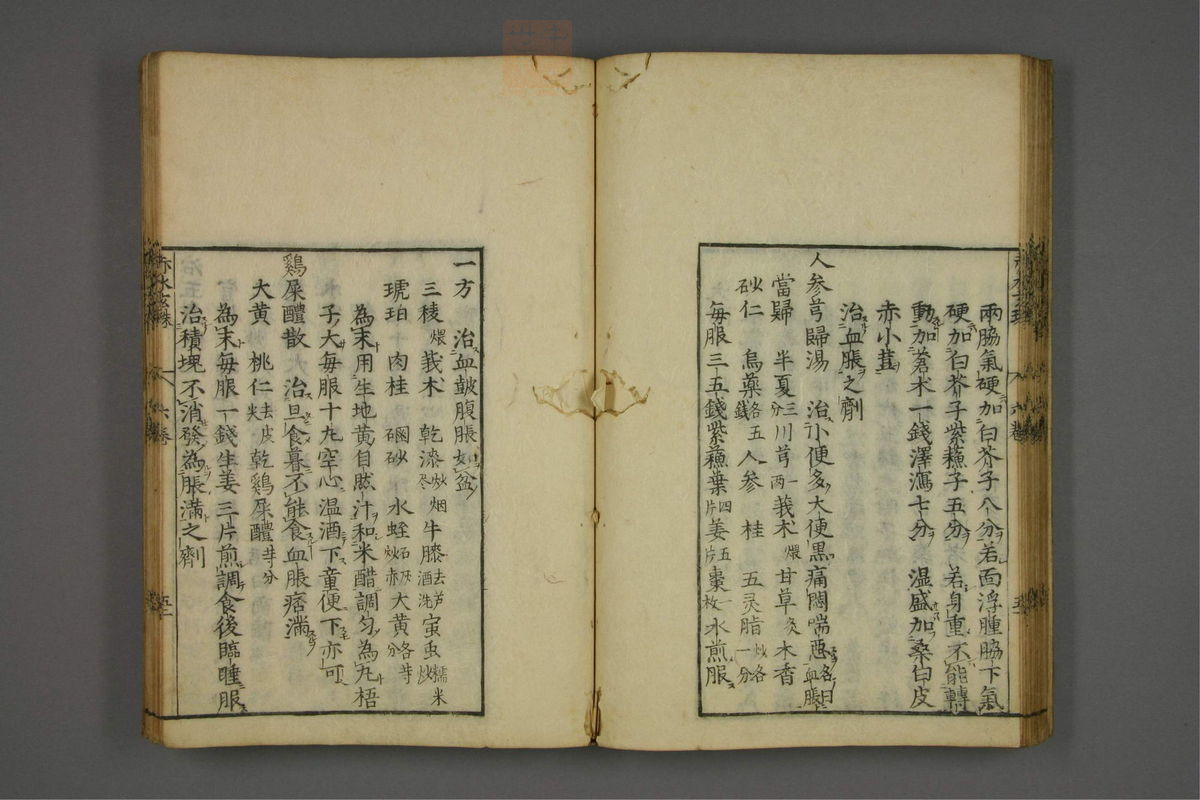 兩脇氣硬加白芥子八分若面浮腫脇下氣
硬加白芥子紫蘇子五分若身重不能轉
動加蒼朮一錢澤瀉七分濕盛加桑白皮
赤小荳
治血脹之劑
人參芎歸湯 治小便多大便黒痛悶喘惡名曰血脹
當歸 半夏三分川芎一両莪朮煨甘草炙木香
砂仁 烏藥各五錢人參 桂 五灵脂炒各一分
每服三五錢紫蘇葉四片姜五片棗一枚水煎服
一方 治血皷腹脹如盆
三棱煨莪朮 乾漆炒烟尽牛膝去芦酒洗寅虫糯米炒
琥珀 肉桂 硇砂 水蛭石灰炒赤大黄各等分
為末用生地黄自然汁和米醋調匀為丸梧
子大每服十九空心温酒下童便下亦可
鷄屎醴散 治旦食暮不能食血脹痞滿
大黄 桃仁去皮尖乾鷄屎醴等分
為末每服一錢生姜三片煎調食後臨睡服
治積塊不消發為脹滿之劑
赤水玄珠
六卷